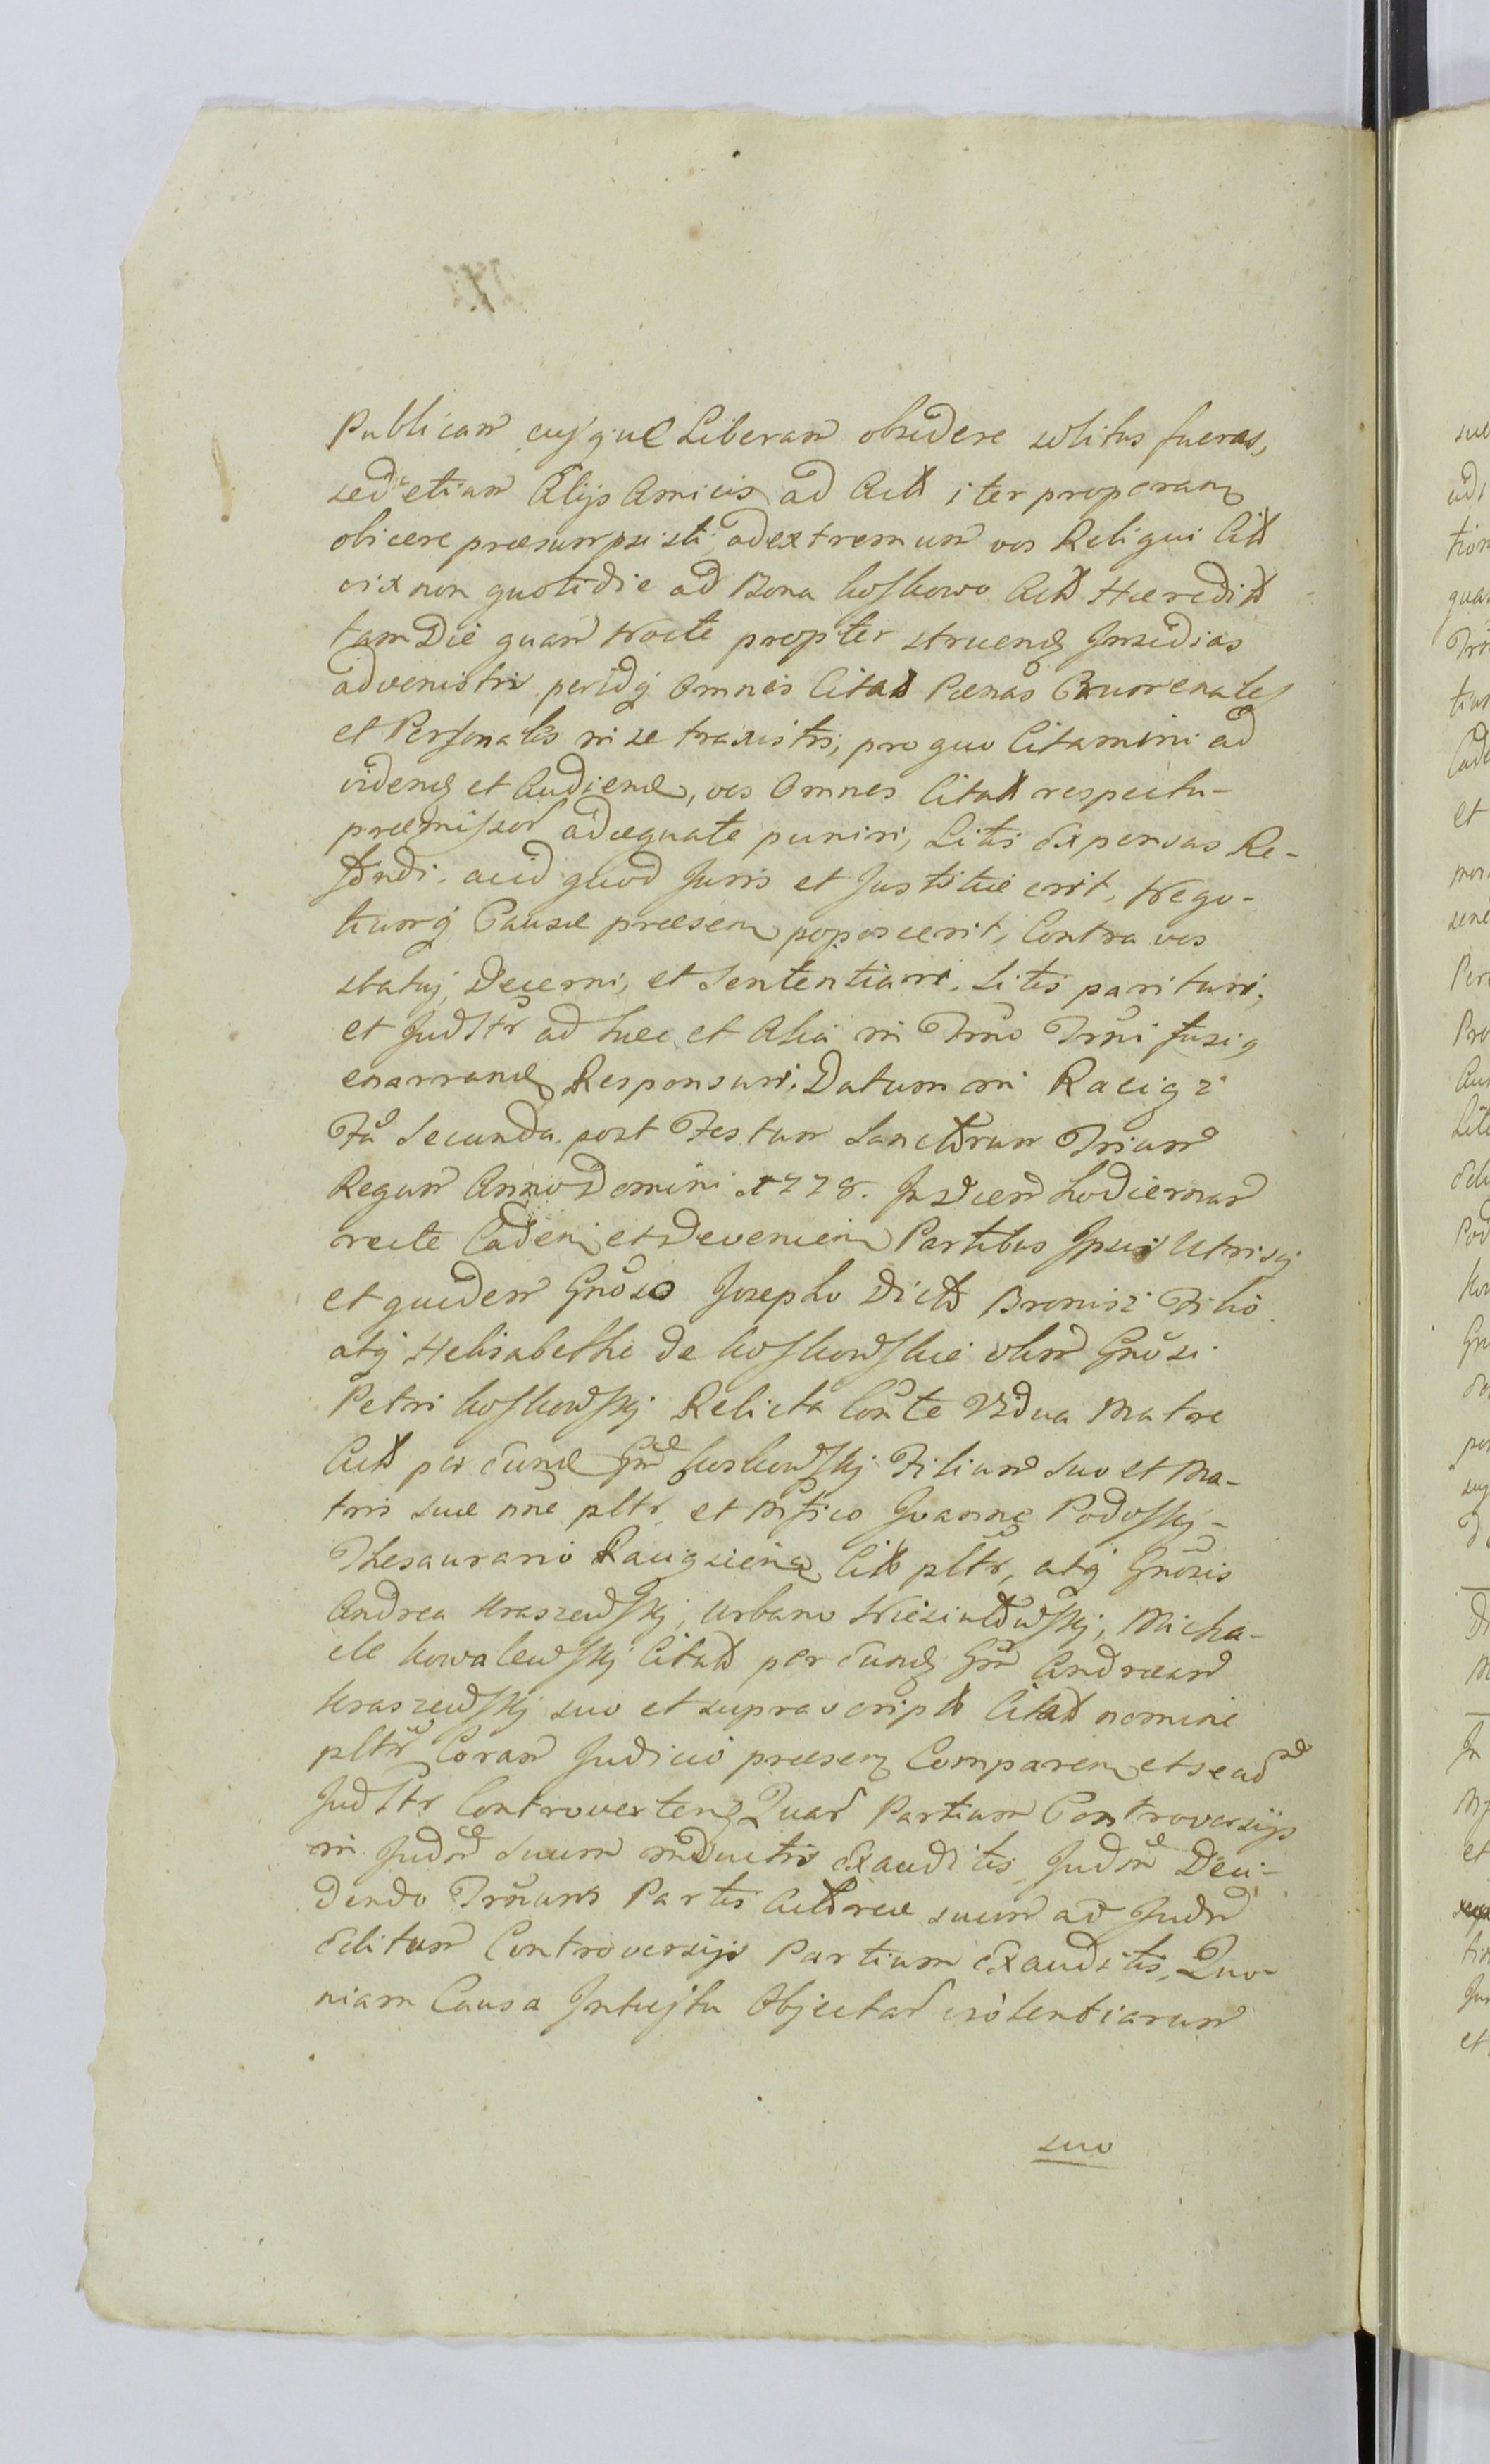 Publicam cujque Liberam obsidere solitus fueras,
sed etiam Alijs Amicis ad Act iter properan
obicere præsumpsisti, ad extremum vos Reliqui Cit
vix non quotidie ad Bona Koskowo Act Hæredit
tam Die quam Nocte propter struend Insidias
advenistis, per idq Omnes Citat Pœnas
et Personales in se traxistis, pro quo Citamini ad
vidend et Audiend, vos Omnes Citat respectu
præmissor adæquate puniri, Litis Expensas Re-
fundi, ac id quod Juris et Justitiæ erit, Nego-
tiumq Causæ præsen poposcerit, Contra vos
statuj, Decerni, et Sententiari. Litis parituri,
et Judltr ad hæc et Alia in Trno Trni fusiq
enarrand Responsuri. Datum in Raciąż
Fa Secunda post Festum Sanctorum Trium
Regum Anno Domini 1778. In Diem hodiernam
recte Caden et Devenien Partibus Ipsis Utrisq
et quidem Gnoso Josepho Dicto Bronisz Filio
atq Helisabethe de Koskowskie olim Gnosi
Petri Koskowskj Relicta Conte Vidua Matre
Act per Eund Gnd Koskowskj Filium suo et Ma-
tris suæ nne pltr, et Mfico Joanne Podoskj
Thesaurario Raciązien Cit pltr, atq Gnosis
Andrea Kraszewskj, Urbano , Micha-
ele Kowalewskj Citat per Eund Gnd Andream
Kraszewskj suo et suprascript Citat nomine
pltr Coram Judicio præsen Comparen et se ad
Judltr Controverten Quar Partium Controversijs
in Judm Suum inductis Exauditis, Judm Deci-
dendo Trnum Partis Actoreæ suum ad Judm
Editum Controversijs Partium Exauditis, Quo-
niam Causa Intujtu Objectar violentiarum
suo